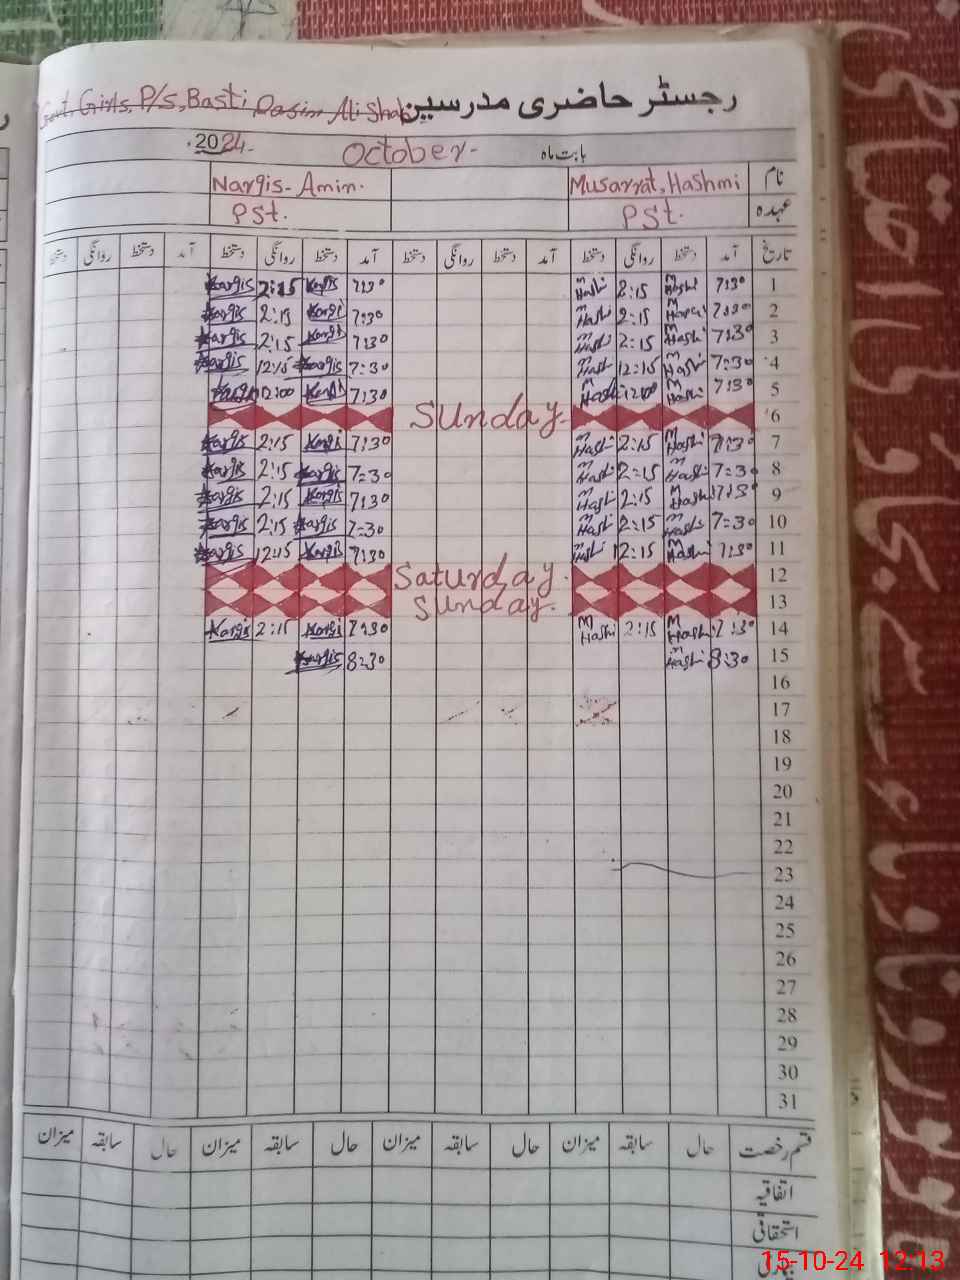 رجسٹر حاضری مدرسین Govt. Girls, P/S, Basti Qasim Ali Shah
بابت ماہ October - 2024.
نام Musarrat, Hashmi Nargis - Amin.
عہدہ PSt. PSt.
تاریخ آمد دستخط روانگی دستخط آمد دستخط روانگی دستخط آمد دستخط روانگی دستخط آمد دستخط روانگی دستخط
1 7:30 M Hashmi 2:15 M Hashi 7:30 Nargis 2:15 Nargis
2 7:30 M Hashi 2:15 M Hashi 7:30 Nargis 2:15 Nargis
3 7:30 M Hashi 2:15 M Hashi 7:30 Nargis 2:15 Nargis
4 7:30 M Hashi 12:15 M Hashi 7:30 Nargis 12:15 Nargis
5 7:30 M Hashi 12:00 M Hashi 7:30 Nargis 12:00 Nargis
6 Sunday
7 7:30 M Hashi 2:15 M Hashi 7:30 Nargis 2:15 Nargis
8 7:30 M Hashi 2:15 M Hashi 7:30 Nargis 2:15 Nargis
9 7:30 M Hashi 2:15 M Hashi 7:30 Nargis 2:15 Nargis
10 7:30 M Hashi 2:15 M Hashi 7:30 Nargis 2:15 Nargis
11 7:30 M Hashi 12:15 M Hashi 7:30 Nargis 12:15 Nargis
12 Saturday.
13 Sunday.
14 7:30 M Hashi 2:15 M Hashi 7:30 Nargis 2:15 Nargis
15 8:30 M Hashi 8:30 Nargis
16
17
18
19
20
21
22
23
24
25
26
27
28
29
30
31
قسم رخصت حال سابقہ میزان حال سابقہ میزان حال سابقہ میزان حال سابقہ میزان
اتفاقیہ
استحقاقی
بیماری
15-10-24 12:13